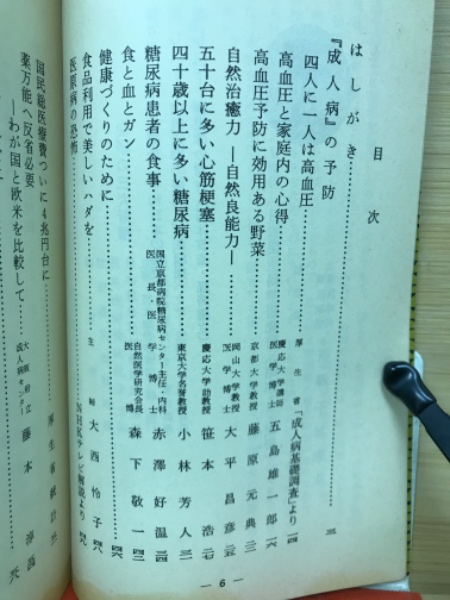 目次
はしがき……三
『成人病』の予防
四人に一人は高血圧……厚生省「成人病基礎調査」より 一四
高血圧と家庭内の心得……慶応大学講師 医学博士 五島雄一郎 一六
高血圧予防に効用ある野菜……京都大学教授 藤原元典 二三
自然治癒力―自然良能力―……岡山大学教授 医学博士 大平昌彦 二五
五十台に多い心筋梗塞……慶応大学助教授 笹本浩 二七
四十歳以上に多い糖尿病……東京大学名誉教授 小林芳人 三二
糖尿病患者の食事……国立京都病院糖尿病センター主任・内科医長・医学博士 赤澤好温 三四
食と血とガン……自然医学研究会長 医博 森下敬一 四二
健康づくりのために……四六
食品利用で美しいハダを……主婦 大西怜子 四八
医原病の恐怖……NHKテレビ解説より
国民総医療費ついに4兆円台に……厚生省統計
薬万能へ反省必要
―わが国と欧米を比較して……大阪府立成人病センター 藤本
― 6 ―